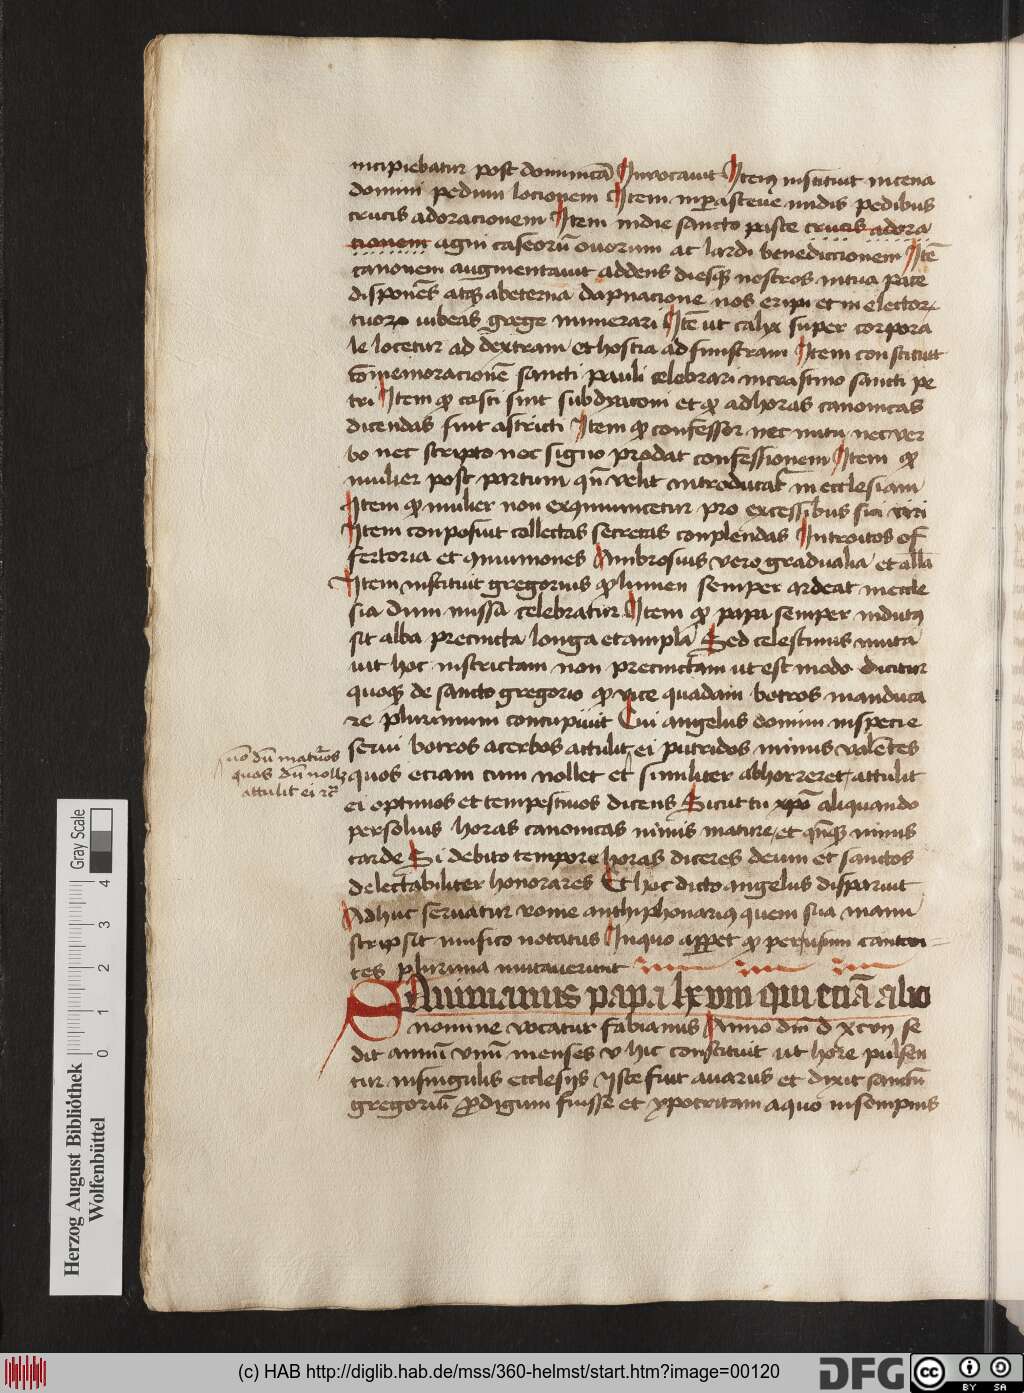 incipiebatur post dominicā Invocauit Itemꝫ instituit in cena
domini pedum locionem Item in parasceue nudis pedibus
crucis adoracionem Item in die sancto pasce crucis adora
cionem agni caseorū ouorum ac lardi benediccionem Itē
canonem augmentauit addens diesqꝫ nostros in tua pace
disponēs atqꝫ ab eterna dapnacione nos eripi et in electorꝝ
tuorꝝ iubeas grege numerari Itē ut calix super corpora
le locetur ad dextram et hostia ad sinistram Item constituit
cōmemoracionē sancti pauli celebrari in crastino sancti pe
tri Item ꝙ casti sint subdyaconi et ꝙ ad horas canonicas
dicendas sint astricti Item ꝙ confessor nec nutu nec ver
bo nec scripto nec signo prodat confessionem Item ꝙ
mulier post partum qn̄ velit introducat᷑ in ecclesiam
Item ꝙ mulier non exꝯmunicetur pro excessibus sui viri
Item composuit collectas secretas conplendas Introitos of
fertoria et ꝯmuniones Ambrosius vero gradualia et allā
Item instituit gregorius ꝙ lumen semper ardeat in eccle
sia dum missa celebratur Item ꝙ papa semper indutꝰ
sit alba precincta longa et ampla Sed celestinus muta
uit hoc in strictam non precinctam ut est modo Dicitur
quoqꝫ de sancto gregorio ꝙ vice quadam botros manduca
re plurimum concupiuit Cui angelus domini in specie
serui botros acerbos attulit ei putridos minus valētes
quos etiam cum nollet et similiter abhorreret attulit
ei optimos et tempestiuos dicens Sicut tu xpō aliquando
persoluis horas canonicas nimis mature et qn̄qꝫ nimis
tarde Si debito tempore horas diceres deum et sanctos
delectabiliter honorares Et hoc dicto angelus disparuit
Adhuc seruatur rome anthiphonariꝰ quem sua manu
scripsit musico notatus In quo apparet ꝙ per usum cantan
tes plurima mutauerunt
Sauinianus papa lxviii qui etiā alio
nomine vocatur fabianus Anno dnī d xcvii se
dit annū vnū menses v hic constituit ut hore pulsen
tur in singulis ecclesijs Iste fuit auarus et dixit sanctū
gregoriū ꝓdigum fuisse et ypocritam a quo in sempnis
dū maturos
quos dū nollꝫ
attulit ei
Herzog August Bibliothek
Wolfenbüttel
0 1 2 3 4
Gray Scale
(c) HAB http://diglib.hab.de/mss/360-helmst/start.htm?image=00120
DFG
cc BY SA